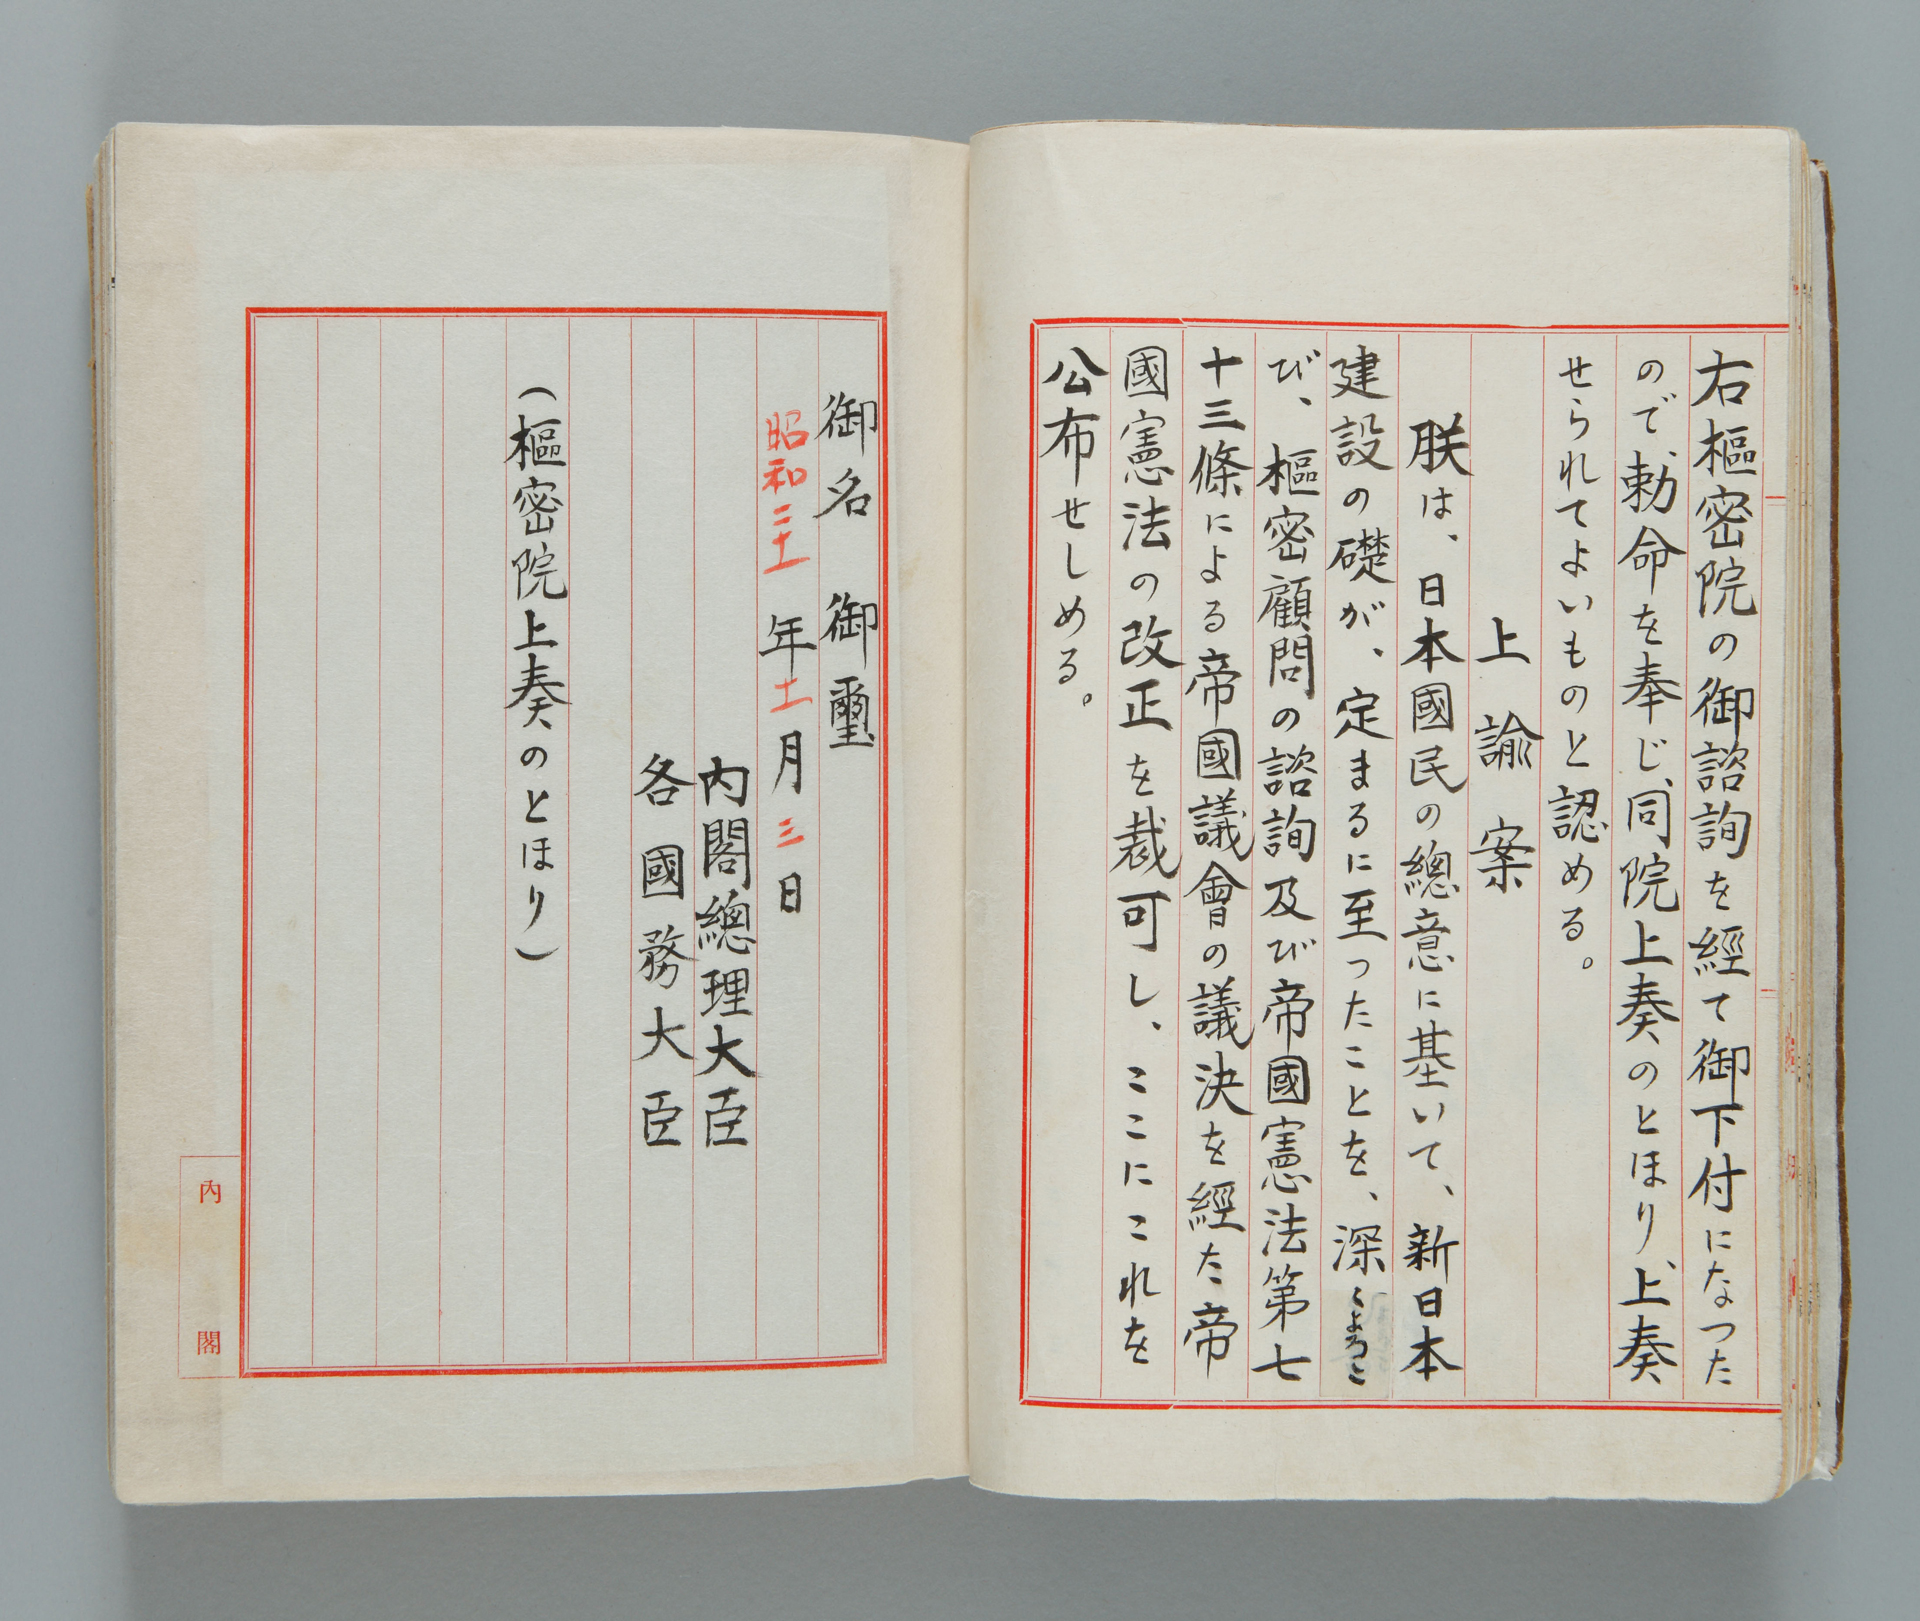 右樞密院の御諮詢を經て御下付になつた
ので、勅命を奉じ、同院上奏のとほり、上奏
せられてよいものと認める。
上諭案
朕は、日本國民の總意に基いて、新日本
建設の礎が、定まるに至つたことを、深くよろこ
び、樞密顧問の諮詢及び帝國憲法第七
十三條による帝國議會の議決を經た帝
國憲法の改正を裁可し、ここにこれを
公布せしめる。
御名 御璽
昭和二十一年十一月三日
內閣總理大臣
各國務大臣
(樞密院上奏のとほり)
內閣